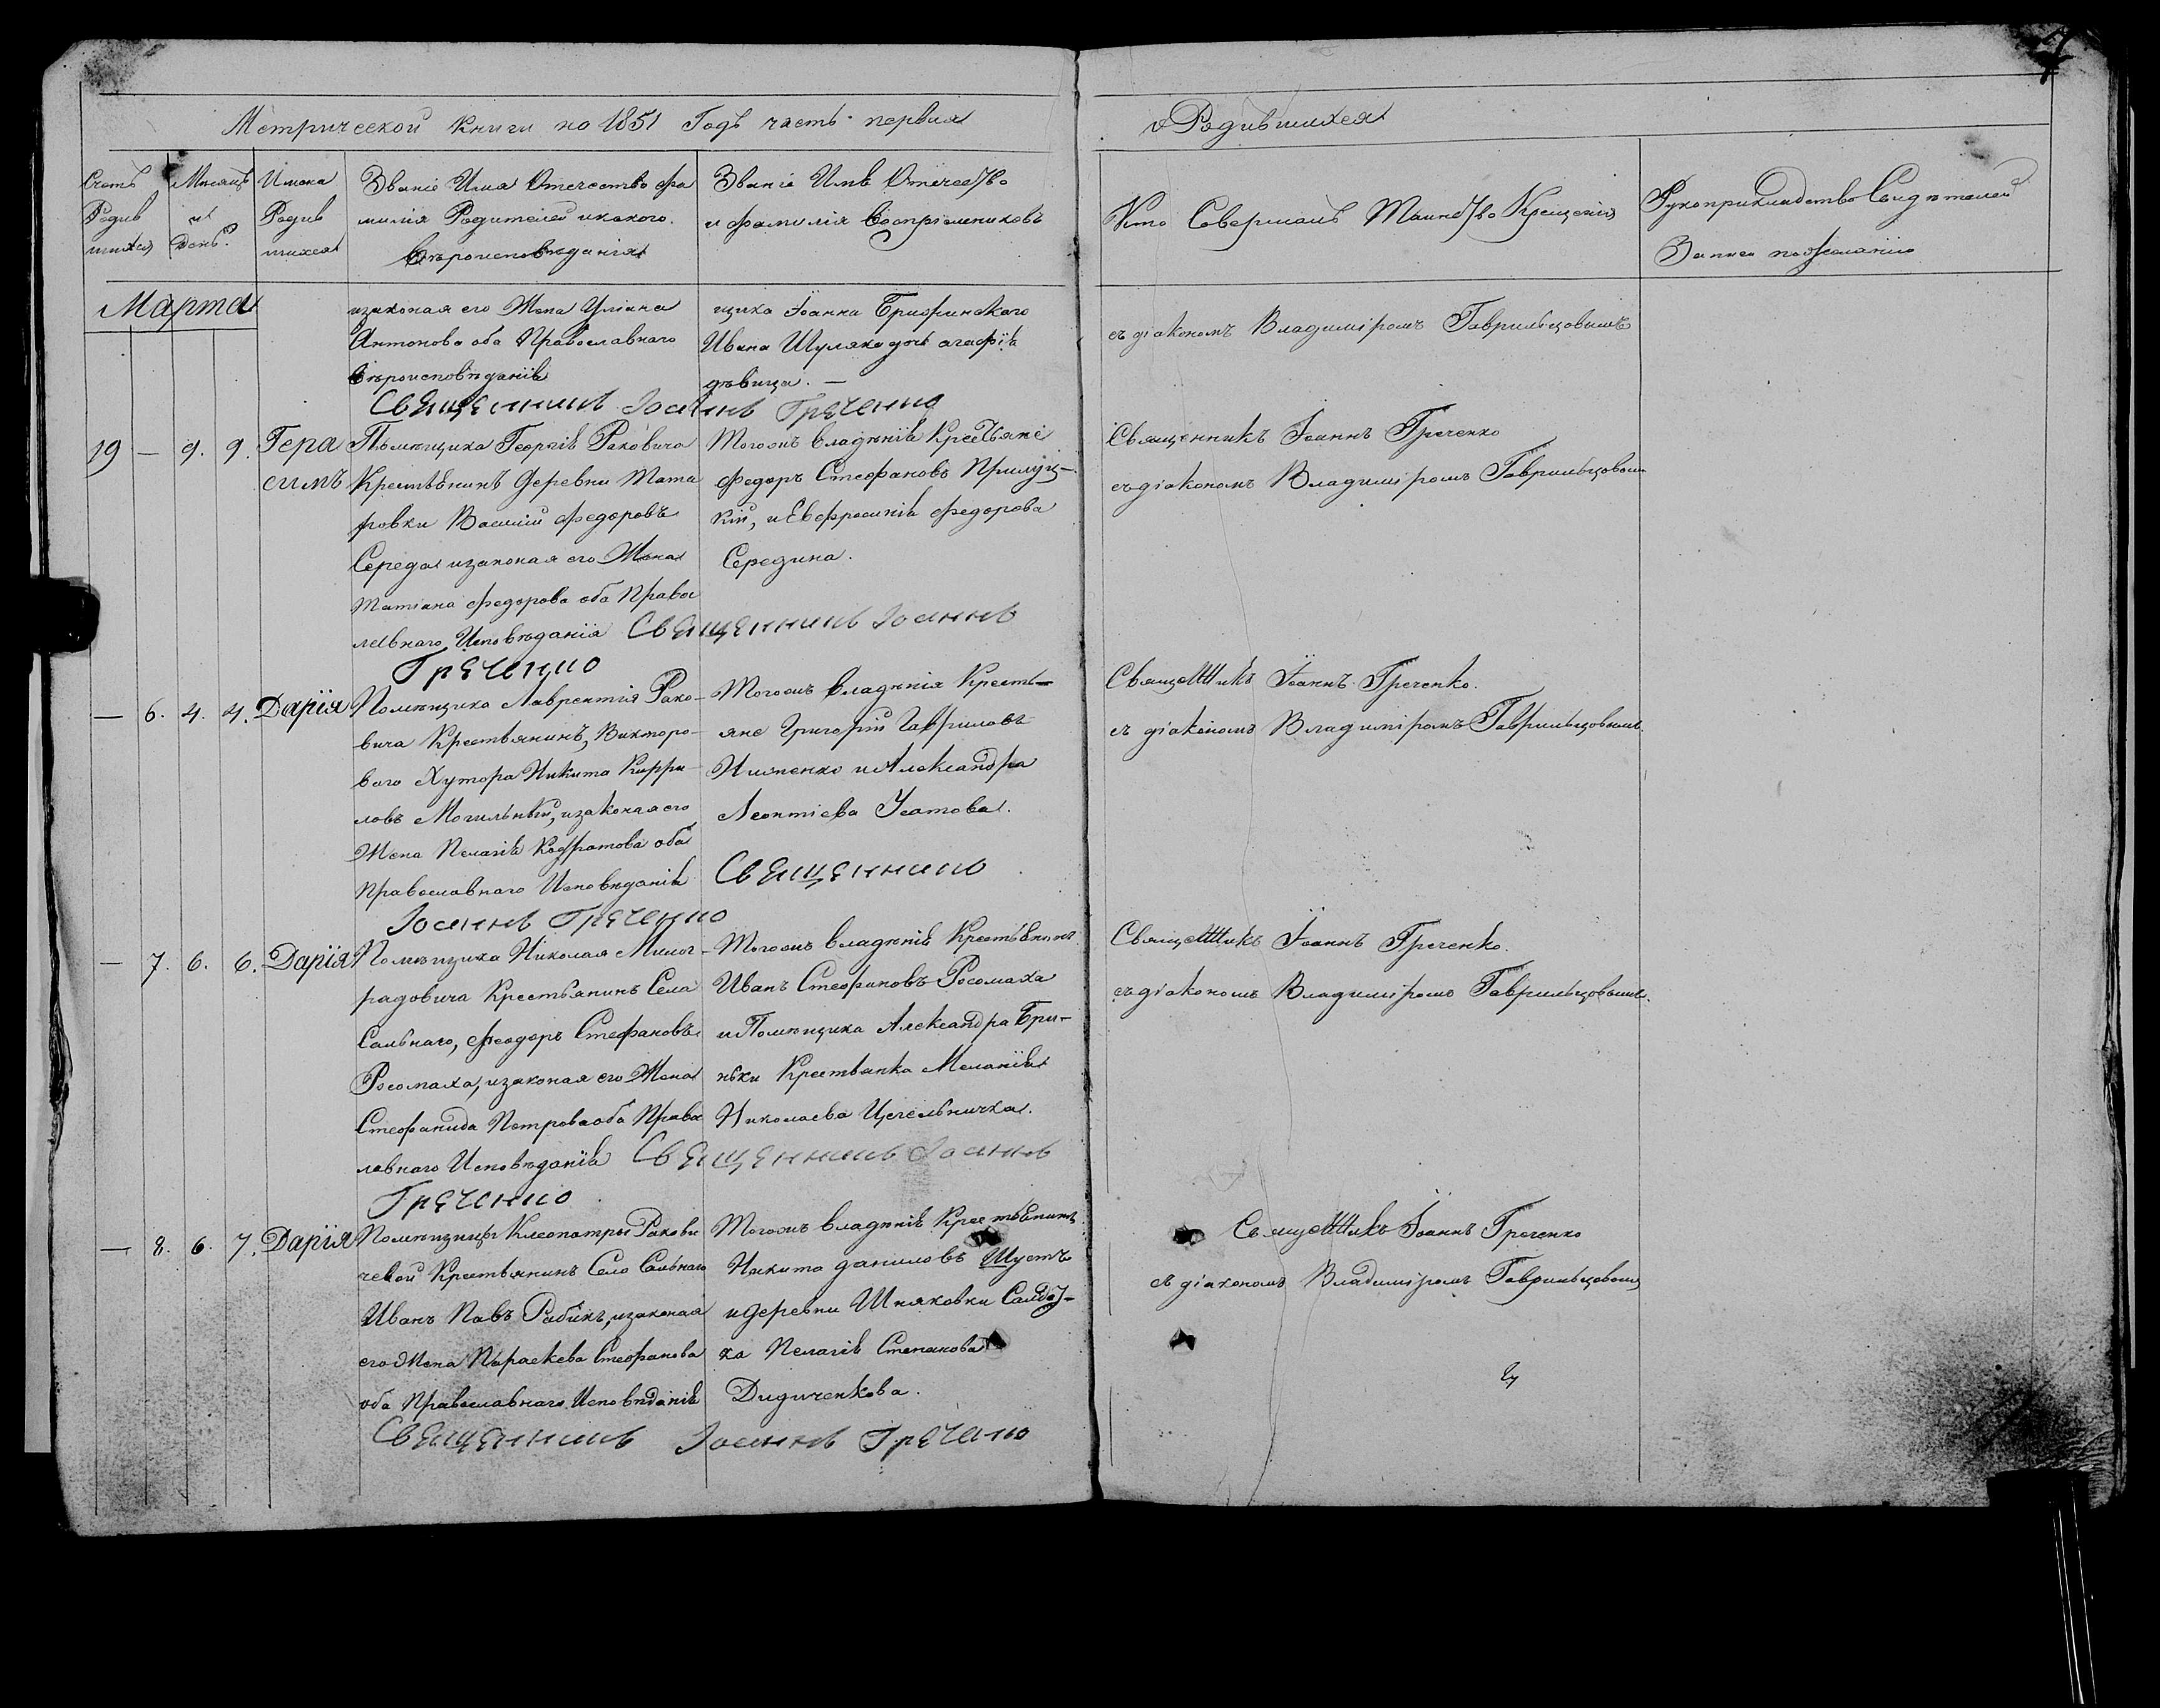 Метрической Книги на 1851 Годъ часть первая
о Родившихся
Счетъ Родив шихся
Мѣсяцъ и день.
Имена Родив шихся
Званіе Имя Отчество фа
милія Родителей и какого
Вѣроисповѣданія
Званіе Имя Отечество
и фамилія Воспріемниковъ
Кто Совершалъ Таинство Крещенія
Рукоприкладство Свидѣтелей
Записи по Желанію
Марта
изаконая его Жена Уліана
Антонова оба Православнаго
Вѣроисповѣданія
щика Іоанна
Ивана Шуляка дочь агафія
дѣвица. —
съ діакономъ Владиміромъ Гаврильцовымъ
Священникъ Іоаннъ Греченко
19 — 9. 9. Гера
симъ
Помѣщика Георгія Раковича
Крестьянинъ Деревни
Василій Федоровъ
Середа изаконая его Жена
Татіана Федорова оба Правос
лавнаго Исповѣданія
Тогожъ владѣнія Крестьяне
Федоръ Стефановъ Прилуц-
кій, и Евфросинія Федорова
Середина.
Священникъ Іоаннъ Греченко
съ діакономъ Владиміромъ Гаврильцовым
Священникъ Іоаннъ
Греченко
— 6. 4. 4. Дарія
Помѣщика Лаврентія Рако-
вича Крестьянинъ, Викторо-
ваго Хутора Никита Кирри-
ловъ Могильный, изаконая его
Жена Пелагія Кодратова оба
Православнаго Исповѣданія
Тогожъ владѣнія Кресть-
яне Григорій Гавриловъ
и Александра
Леонтіева Усатова.
Священникъ Іоаннъ Греченко.
съ діакономъ Владиміромъ Гаврильцовымъ.
Священникъ
Іоаннъ Греченко
— 7. 6. 6. Дарія
Помѣщика Николая Милог-
радовича Крестьянинъ Села
Сальнаго, Феодоръ Стефановъ
Росомаха, изаконая его Жена
Стефанида Петрова оба Правос
лавнаго Исповѣданія
Тогожъ владѣнія Крестьянинъ
Иванъ Стефановъ Росомаха
и Помѣщика Александра Бри-
ньки Крестьянка Меланія
Николаева Цегельничка.
Священникъ Іоаннъ Греченко.
съ діакономъ Владиміромъ Гаврильцовымъ.
Священникъ Іоаннъ
Греченко
— 8. 6. 7. Дарія
Помѣщицы КлеопатрыРакови
чевой Крестьянинъ Села Сальнаго
Иванъ Павъ Рабикъ, изаконая
его Жена Параскева Стефанова
оба Православнаго Исповѣданія
Тогожъ владѣнія Крестьянинъ
Никита даниловъ Шустъ
и деревни Шняковки Салдат-
ка Пелагія Степанова
Дидиченкова.
Священникъ Іоаннъ Греченко
съ діакономъ Владиміромъ Гаврильцовым
Священникъ Іоаннъ Греченко